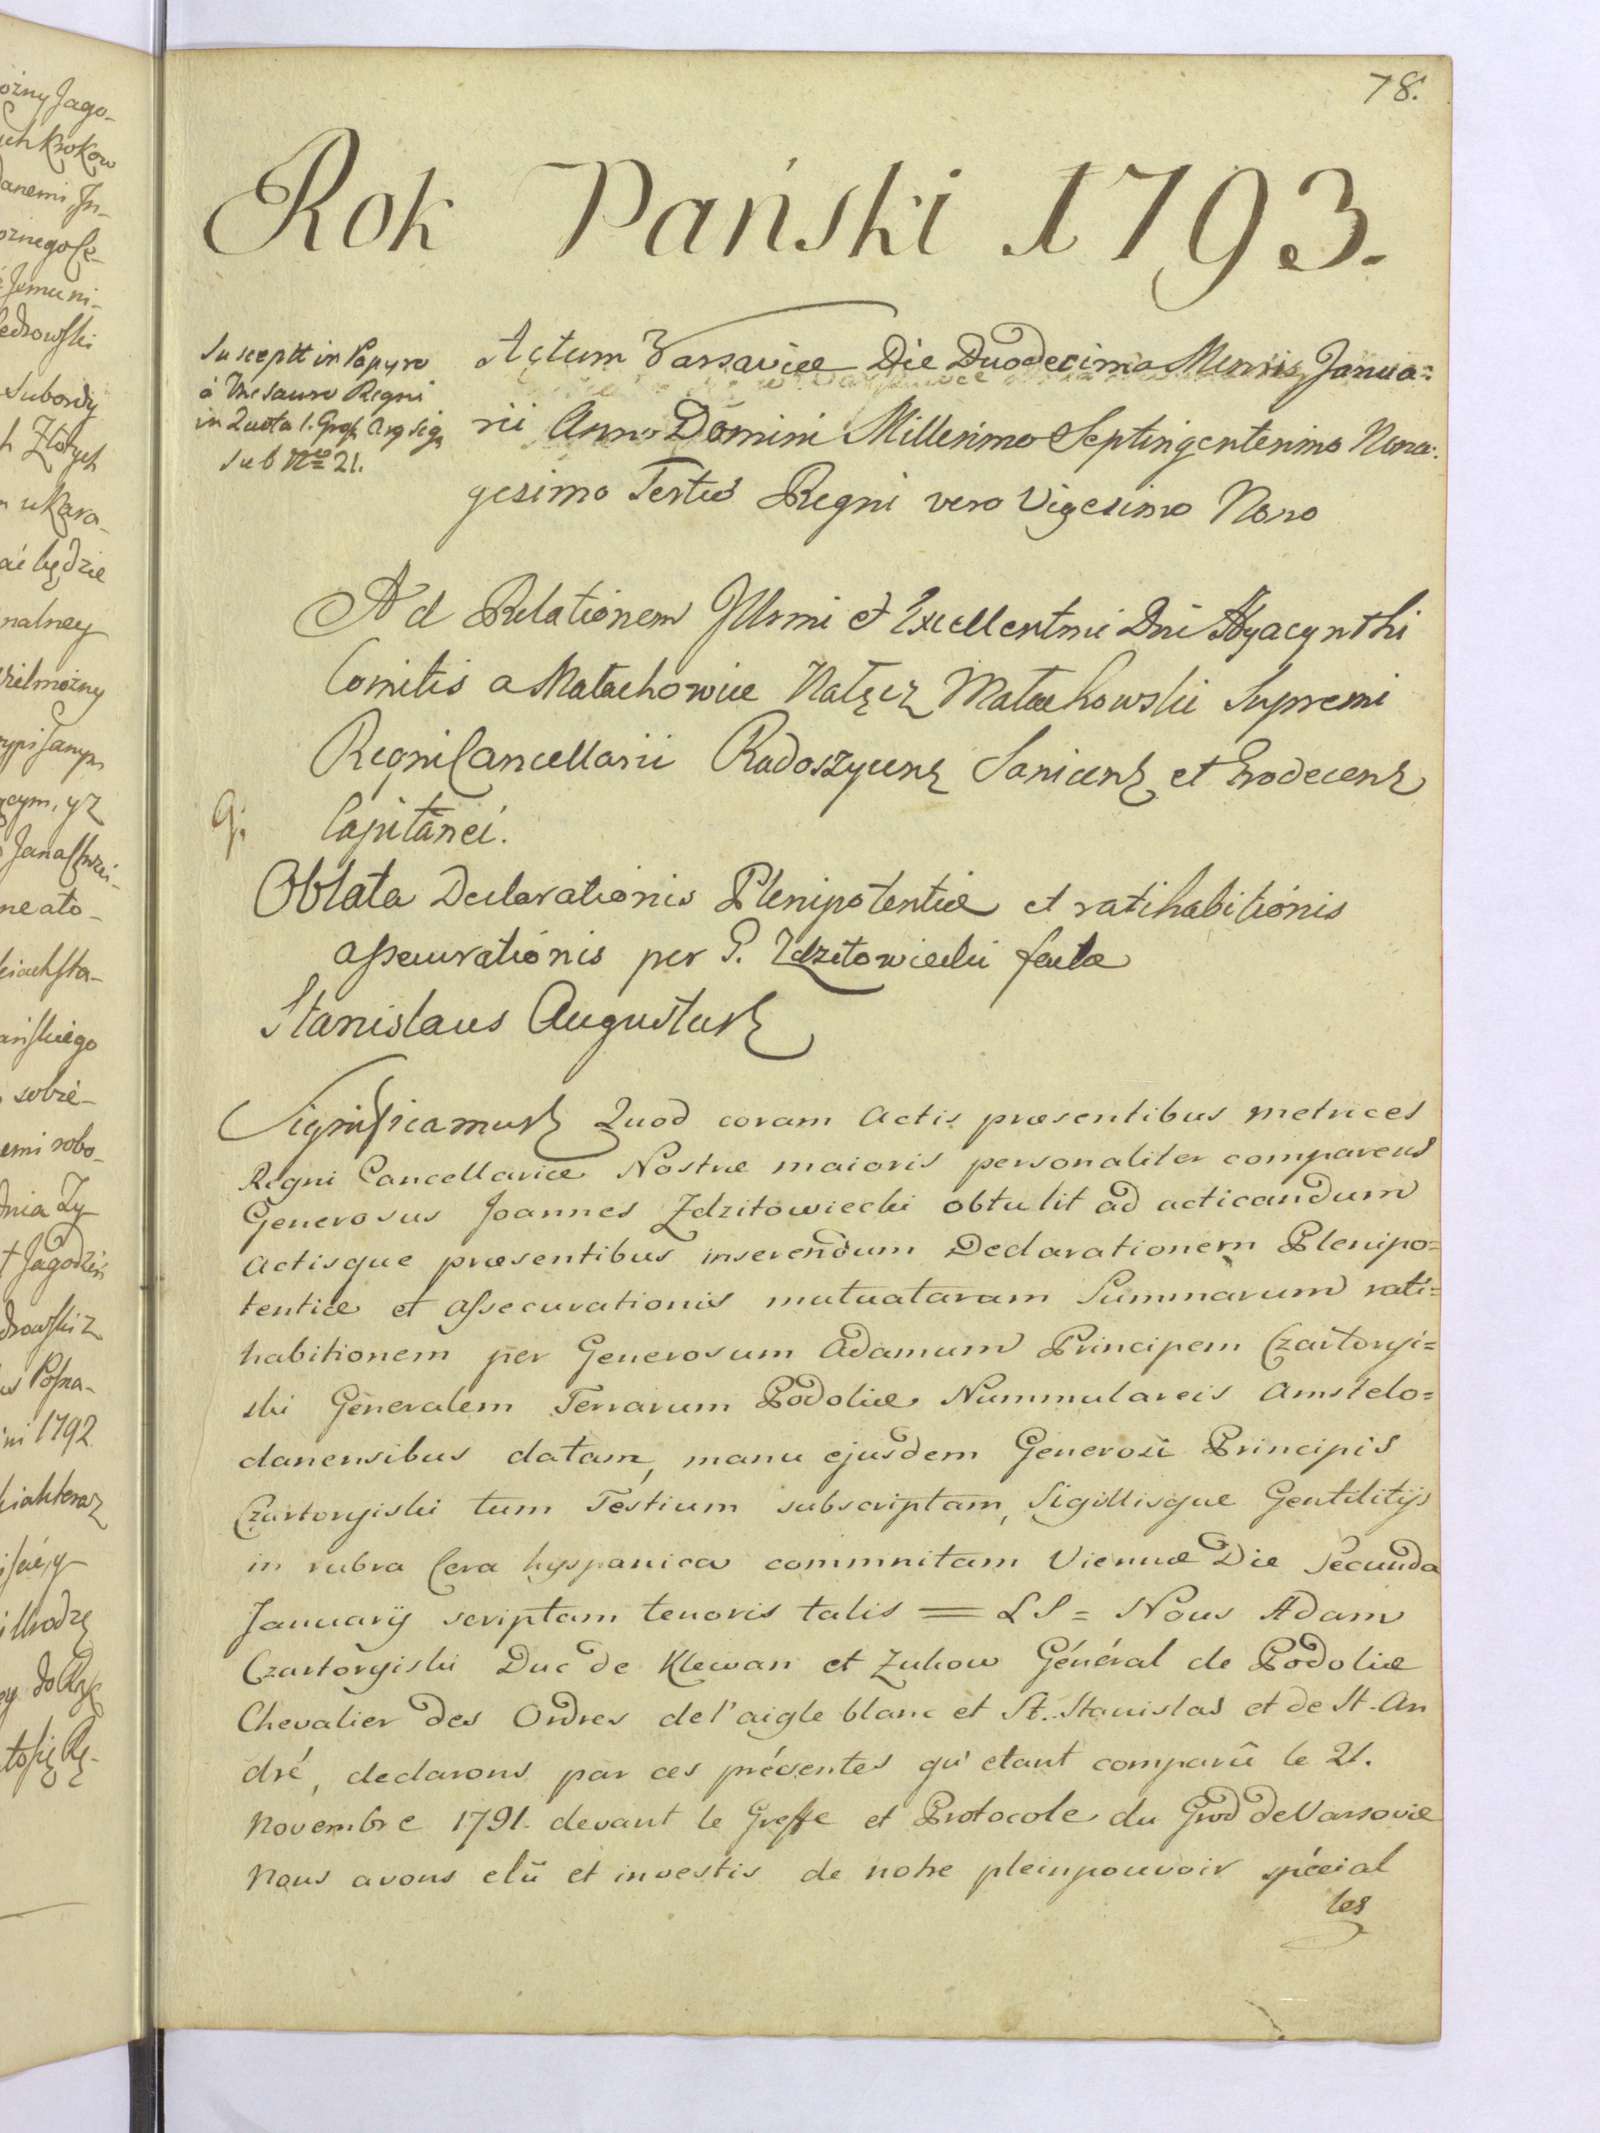 78.
Rok Pański 1793.
Susceptt in Papyro
à Thesauro Regni
in Quota 1. Grosz. Arg sig
sub Nro 21.
Actum Varsaviæ Die Duodecima Mensis Janua=
rii Anno Domini Millesimo Septingentesimo Nona=
gesimo Tertio Regni vero Vigesimo Nono
Ad Relationem Illsmi et Excellentmi Dni Hyacynthi
Comitis a Małachowice Nałęcz Małachowski Supremi
Regni Cancellarii Radoszycens Sanicens et Grodecens
G. Capitanei.
Oblata Declarationis Plenipotentiæ et ratihabitionis
assecurationis per G. Zdzitowiecki facta
Stanislaus Augustus
Significamus Quod coram Actis præsentibus metrices
Regni Cancellariæ Nostræ maioris personaliter comparens
Generosus Joannes Zdzitowiecki obtulit ad acticandum
Actisque præsentibus inserendum Declarationem Plenipo=
tentiæ et assecurationis mutuataram Summarum rati=
habitionem per Generosum Adamum Principem Czartoryi=
ski Generalem Terrarum Podoliæ Nummulareis Amstelo=
danensibus datam, manu ejusdem Generosi Principis
Czartoryiski tum Testium subscriptam, Sigillisque Gentilitijs
in rubra Cera hyspanica communitam Viennæ Die Secunda
Januarij scriptam tenoris talis = LS = Nous Adam
Czartoryiski Duc de Klewan et Zukow Général de Podolie
Chevalier des Ordres de l'aigle blanc et St. Stanislas et de St. An
dré, declarons par ces présentes qu'etant comparû le 21.
Novembre 1791. devant le Greffe et Protocole du Grod de Varsovie
Nous avons elû et investis de notre pleinpouvoir spécial
les